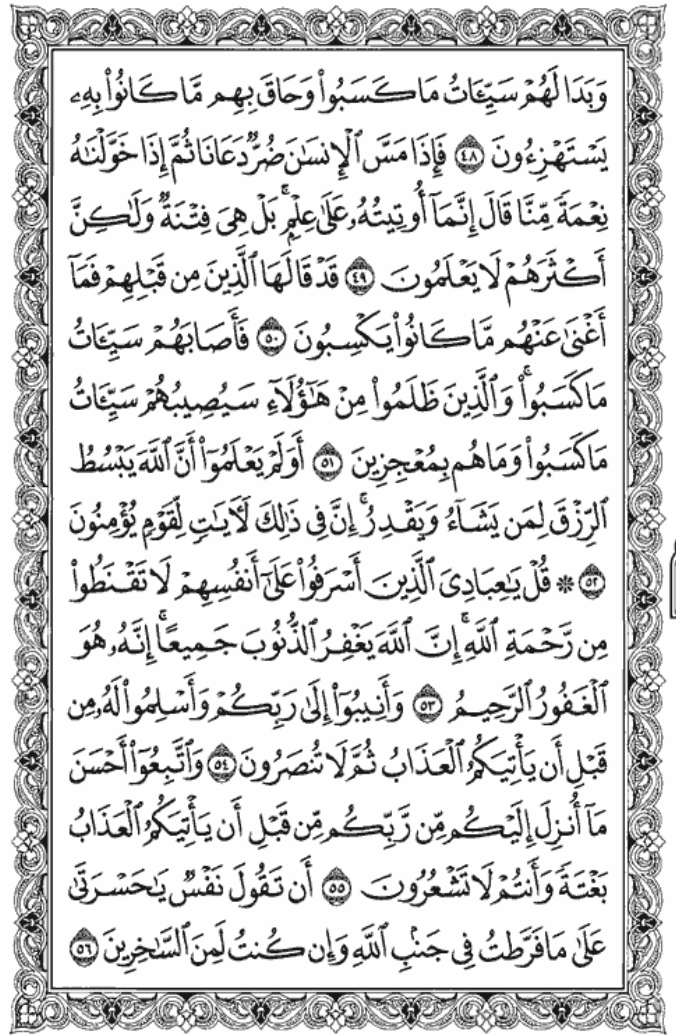 وَبَدَا لَهُمْ سَيِّـَٔاتُ مَا كَسَبُوا۟ وَحَاقَ بِهِم مَّا كَانُوا۟ بِهِۦ
يَسْتَهْزِءُونَ ٤٨ فَإِذَا مَسَّ ٱلْإِنسَـٰنَ ضُرٌّ دَعَانَا ثُمَّ إِذَا خَوَّلْنَـٰهُ
نِعْمَةً مِّنَّا قَالَ إِنَّمَآ أُوتِيتُهُۥ عَلَىٰ عِلْمٍۭ ۚ بَلْ هِىَ فِتْنَةٌ وَلَـٰكِنَّ
أَكْثَرَهُمْ لَا يَعْلَمُونَ ٤٩ قَدْ قَالَهَا ٱلَّذِينَ مِن قَبْلِهِمْ فَمَآ
أَغْنَىٰ عَنْهُم مَّا كَانُوا۟ يَكْسِبُونَ ٥٠ فَأَصَابَهُمْ سَيِّـَٔاتُ
مَا كَسَبُوا۟ ۚ وَٱلَّذِينَ ظَلَمُوا۟ مِنْ هَـٰٓؤُلَآءِ سَيُصِيبُهُمْ سَيِّـَٔاتُ
مَا كَسَبُوا۟ وَمَا هُم بِمُعْجِزِينَ ٥١ أَوَلَمْ يَعْلَمُوٓا۟ أَنَّ ٱللَّهَ يَبْسُطُ
ٱلرِّزْقَ لِمَن يَشَآءُ وَيَقْدِرُ ۚ إِنَّ فِى ذَٰلِكَ لَـَٔايَـٰتٍ لِّقَوْمٍ يُؤْمِنُونَ
٥٢ ۞ قُلْ يَـٰعِبَادِىَ ٱلَّذِينَ أَسْرَفُوا۟ عَلَىٰٓ أَنفُسِهِمْ لَا تَقْنَطُوا۟
مِن رَّحْمَةِ ٱللَّهِ ۚ إِنَّ ٱللَّهَ يَغْفِرُ ٱلذُّنُوبَ جَمِيعًا ۚ إِنَّهُۥ هُوَ
ٱلْغَفُورُ ٱلرَّحِيمُ ٥٣ وَأَنِيبُوٓا۟ إِلَىٰ رَبِّكُمْ وَأَسْلِمُوا۟ لَهُۥ مِن
قَبْلِ أَن يَأْتِيَكُمُ ٱلْعَذَابُ ثُمَّ لَا تُنصَرُونَ ٥٤ وَٱتَّبِعُوٓا۟ أَحْسَنَ
مَآ أُنزِلَ إِلَيْكُم مِّن رَّبِّكُم مِّن قَبْلِ أَن يَأْتِيَكُمُ ٱلْعَذَابُ
بَغْتَةً وَأَنتُمْ لَا تَشْعُرُونَ ٥٥ أَن تَقُولَ نَفْسٌ يَـٰحَسْرَتَىٰ
عَلَىٰ مَا فَرَّطتُ فِى جَنۢبِ ٱللَّهِ وَإِن كُنتُ لَمِنَ ٱلسَّـٰخِرِينَ ٥٦